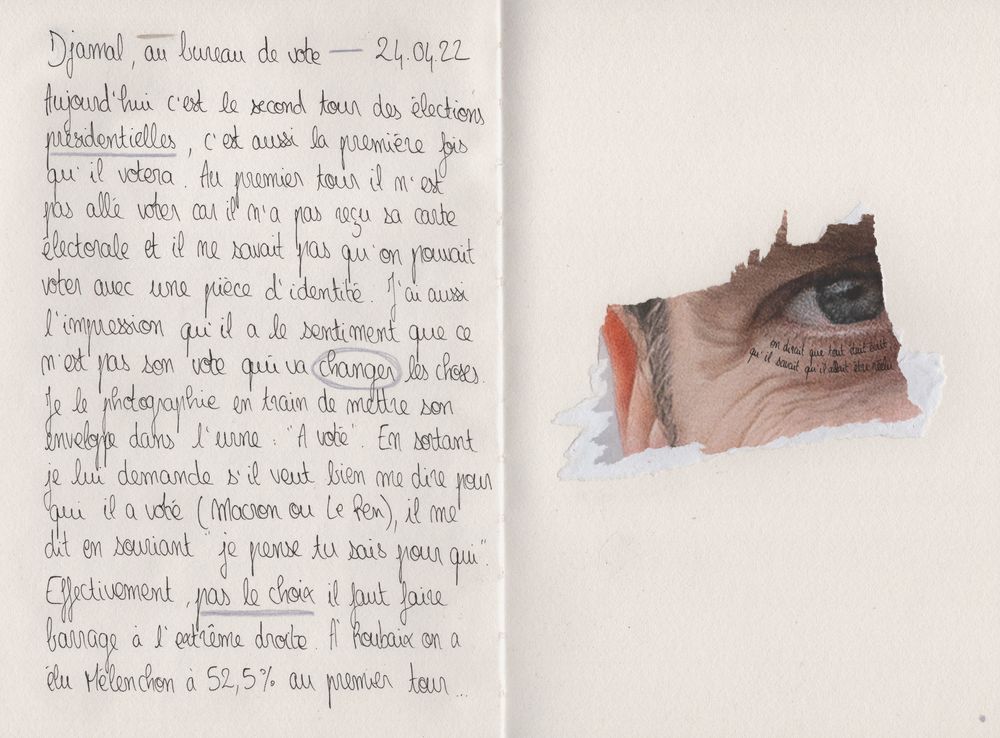 Djamal, au bureau de vote — 24.04.22
Aujourd'hui c'est le second tour des élections
présidentielles, c'est aussi la première fois
qu'il votera. Au premier tour il n'est
pas allé voter car il n'a pas reçu sa carte
électorale et il ne savait pas qu'on pouvait
voter avec une pièce d'identité. J'ai aussi
l'impression qu'il a le sentiment que ce
n'est pas son vote qui va changer les choses.
Je le photographie en train de mettre son
enveloppe dans l'urne : "A voté". En sortant
je lui demande s'il veut bien me dire pour
qui il a voté (Macron ou Le Pen), il me
dit en souriant "je pense tu sais pour qui".
Effectivement, pas le choix il faut faire
barrage à l'extrême droite. A Roubaix on a
élu Mélenchon à 52,5% au premier tour...
on dirait que tout était écrit
qu'il savait qu'il allait être réélu